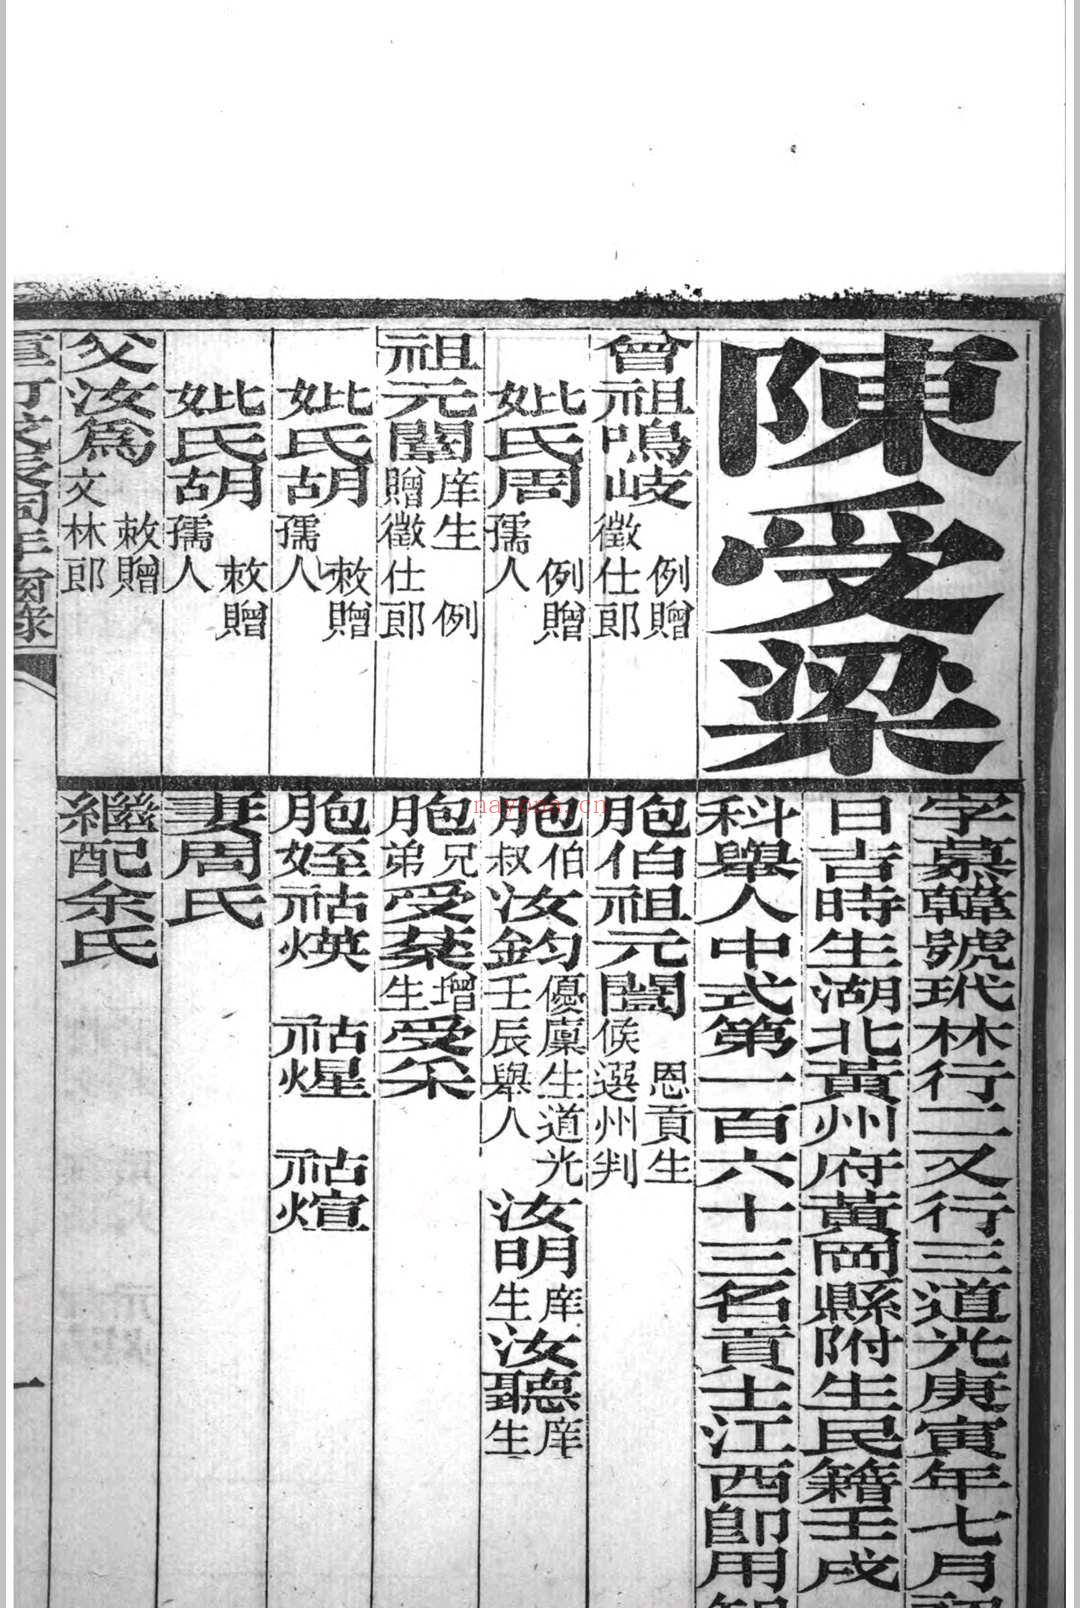 陳受梁
曾祖鳴岐例贈徵仕郎
妣氏周例贈孺人
祖元闈庠生例贈徵仕郎
妣氏胡敕贈孺人
妣氏胡敕贈孺人
父汝爲敕贈文林郎
字慕韓號玳林行二又行三道光庚寅年七月初
日吉時生湖北黃州府黃岡縣附生民籍壬戌
科舉人中式第一百六十三名貢士江西卽用知
胞伯祖元闓恩貢生候選州判
胞伯叔汝鈞優廩生道光壬辰舉人汝明庠生汝聽庠生
胞兄弟受棻增生受采
胞姪祜煐祜煋祜煊
妻周氏
繼配余氏
一
nayona.cn